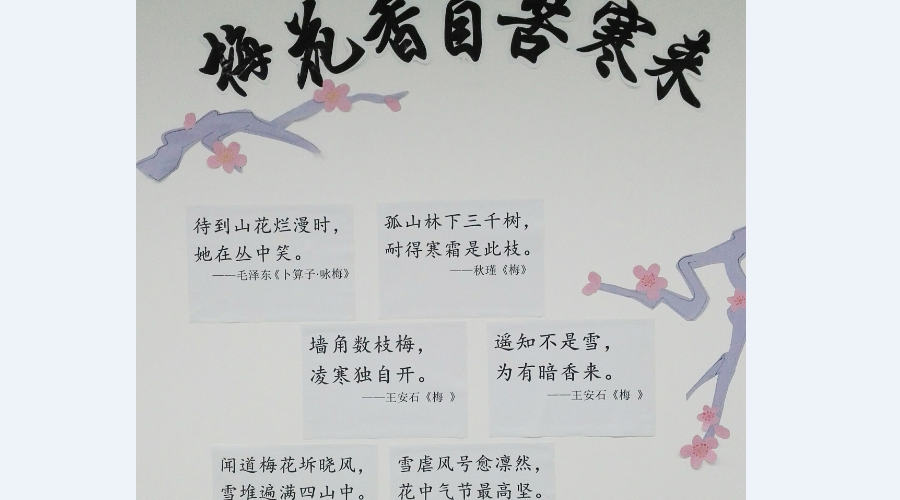 梅花香自苦寒来
待到山花烂漫时，
她在丛中笑。
——毛泽东《卜算子·咏梅》
孤山林下三千树，
耐得寒霜是此枝。
——秋瑾《梅》
墙角数枝梅，
凌寒独自开。
——王安石《梅 》
遥知不是雪，
为有暗香来。
——王安石《梅 》
闻道梅花坼晓风，
雪堆遍满四山中。
雪虐风号愈凛然，
花中气节最高坚。